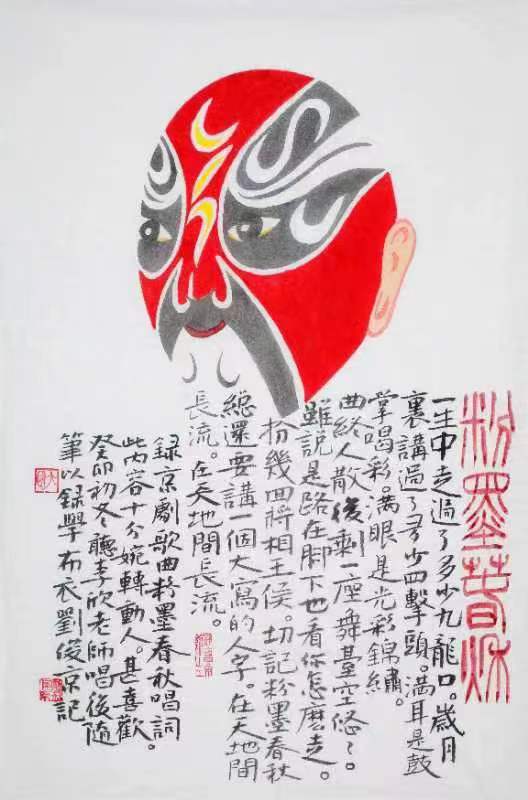 粉墨春秋
一生中走過了多少九龍口。歲月
裏講過了多少四擊頭。满耳是鼓
掌喝彩满眼是光彩錦繡。
曲終人散後剩一座舞臺空悠悠。
雖說是路在脚下也看你怎麽走。
扮幾回將相王侯。切記粉墨春秋
總還要講一個大寫的人字。在天地間
長流。在天地間長流。
録京劇歌曲粉墨春秋唱詞
此内容十分婉轉動人。甚喜歡。
癸卯初冬聽李欣老師唱後随
筆以録學布衣劉俊京記